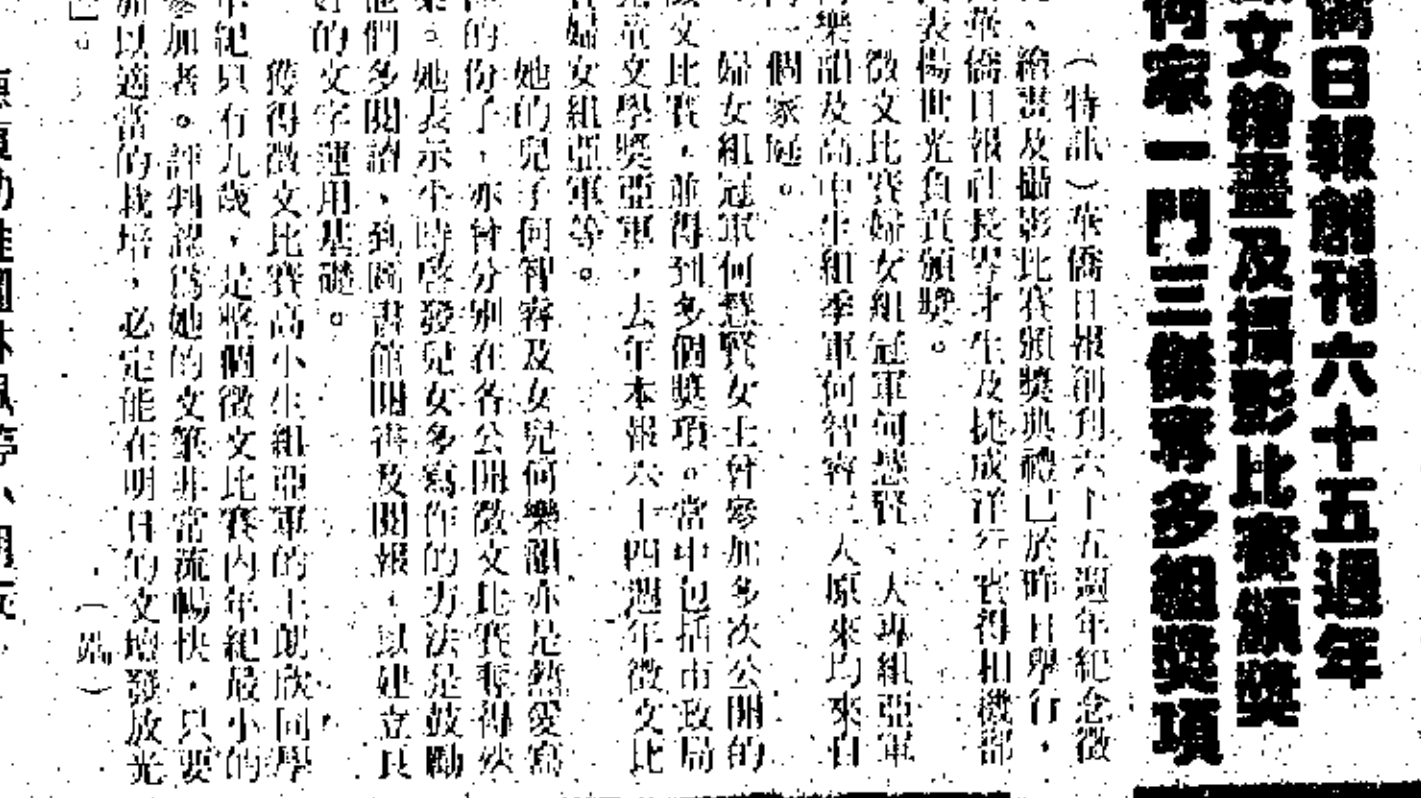 僑日報創刊六十五週年
文繪畫及攝影比賽頒獎
何家一門三傑奪多組獎項
（特訊）華僑日報創刊六十五週年紀念徵
、繪畫及攝影比賽頒獎典禮已於昨日舉行，
華僑日報社長岑才生及捷成洋行寶得相機部
表揚世光負責頒獎。
徵文比賽婦女組冠軍何慧賢、大專組亞軍
樂韻及高中生組季軍何智睿三人原來均來自
一個家庭。
婦女組冠軍何慧賢女士曾參加多次公開的
徵文比賽，並得到多個獎項。當中包括市政局
兒童文學獎亞軍，去年本報六十四週年徵文比
婦女組亞軍等。
她的兒子何智睿及女兒何樂韻亦是熱愛寫
的份子，亦曾分別在各公開徵文比賽奪得殊
。她表示平時啓發兒女多寫作的方法是鼓勵
他們多閱讀、到圖書館開書及閱報，以建立良
好的文字運用基礎。
獲得徵文比賽高小生組亞軍的王朗欣同學
年紀只有九歲，是整個徵文比賽內年紀最小的
參加者。評判認爲她的文筆非常流暢快，只要
加以適當的栽培，必定能在明日的文壇發放光
」。（鳳）